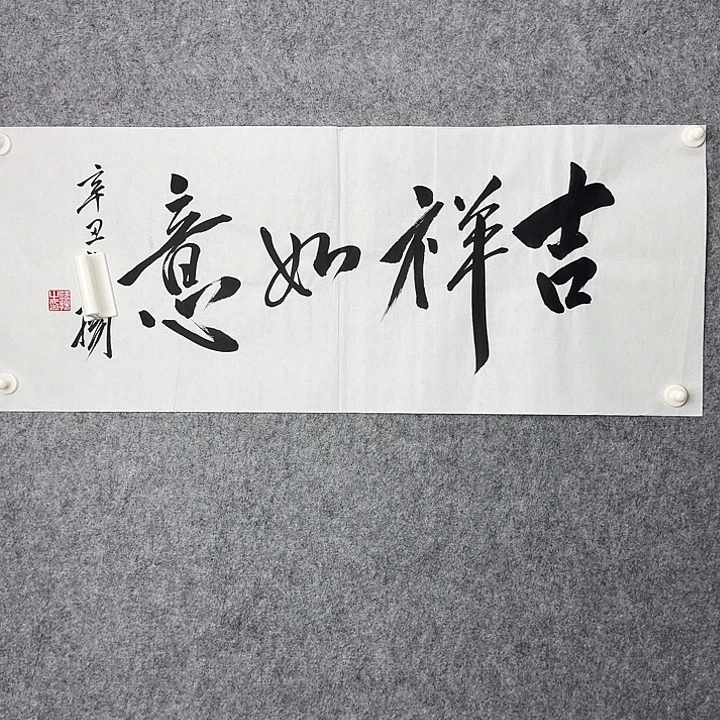 吉祥如意
辛丑